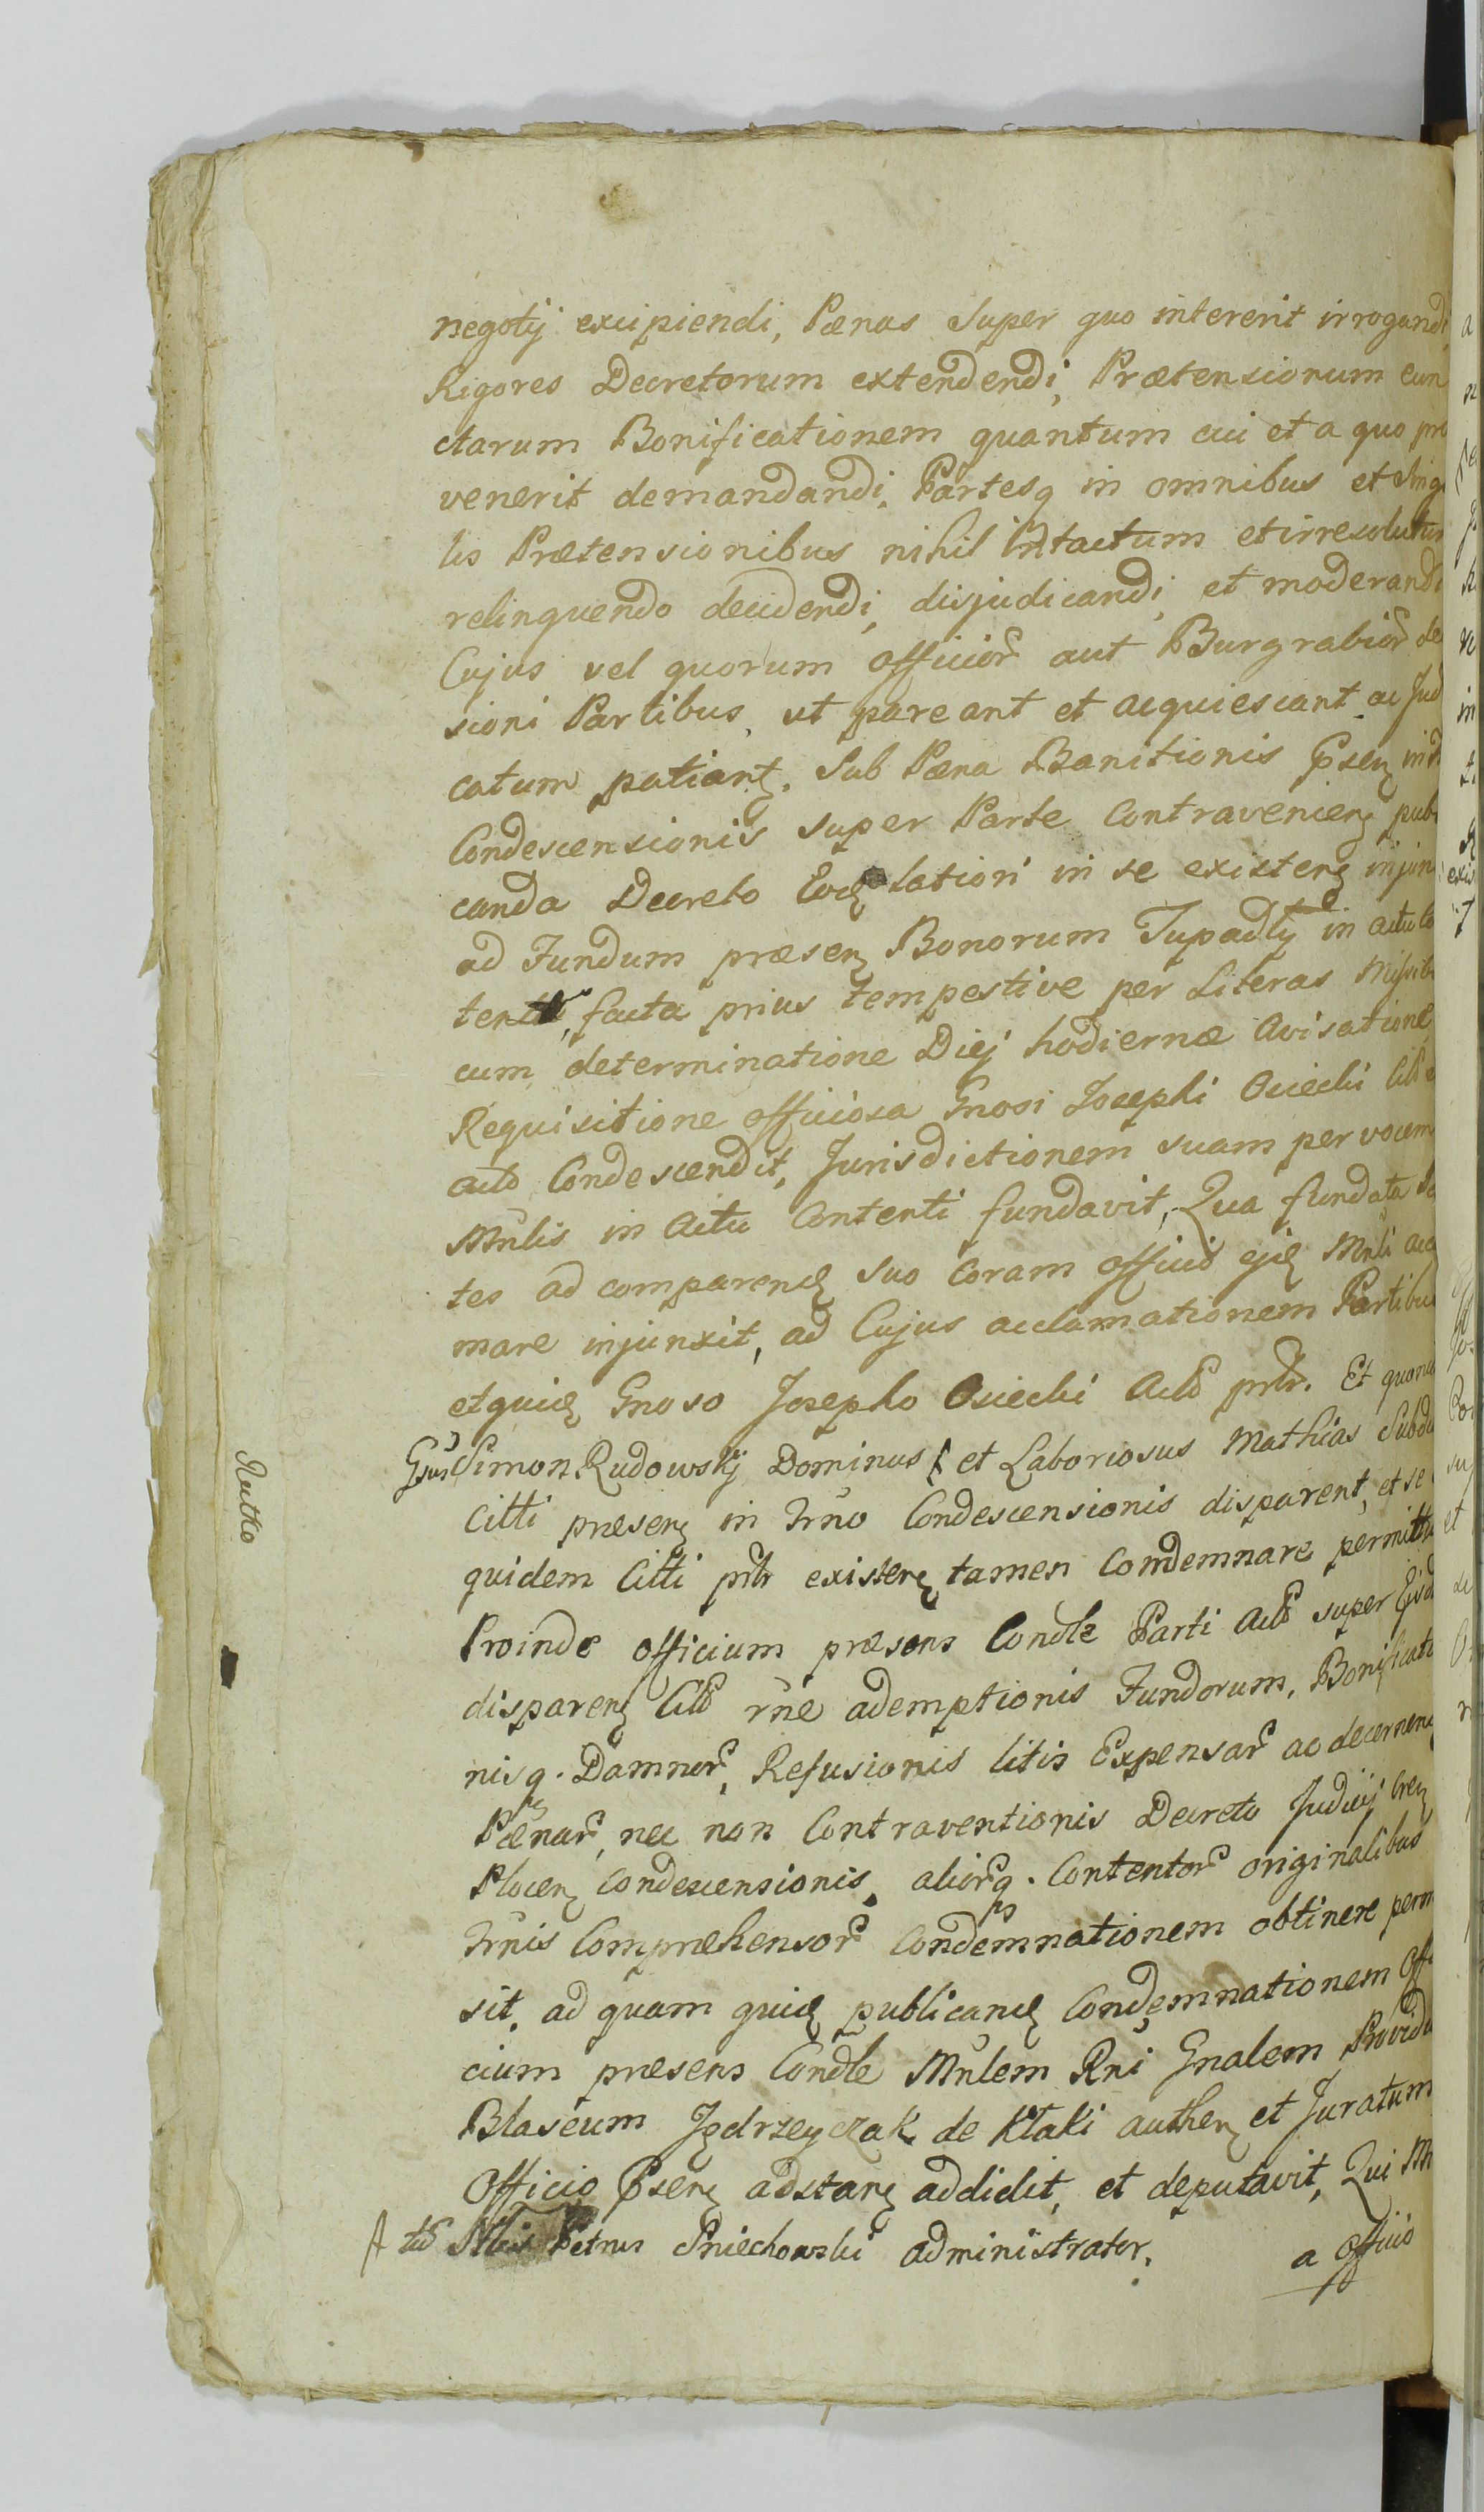 negotij excipiendi, Pænas super quo intererit irrogandi
Rigores Decretorum extendendi, Prætensionum cun
ctarum Bonificationem quantum cui et a quo pro
venerit demandandi, Partesq in omnibus et sing
lis Prætensionibus nihil intactum et irresolutum
relinquendo decidendi, disjudicandi, et moderandi
Cujus vel quorum officior aut Burgrabior de
sioni Partibus, ut pareant et acquiescant ac Jud
catum patiant, sub Pæna Banitionis Psen
Condescensionis super Parte Contravenien pub
canda Decreto latiori in se existen injun
ad Fundum præsen Bonorum Tupadly in actu
facta prius tempestive per Literas
cum determinatione Diej hodiernæ Avisatione
Requisitione officiosa Gnosi Josephi Osiecki
acto Condescendit, Jurisdictionem suam per vocem
Mnlis in Actu Contenti fundavit, Qua fundata
tes ad comparend suo Coram officio ejd Mnli acc
mare injunxit, ad Cujus acclamationem Partibus
et quid Gnoso Josepho Osiecki Acto pntr. Et quon
Gsus Simon Rudowskij Dominus et Laboriosus Mathias
Citti præsen in Trno Condescensionis disparent, et se
quidem Citti pntr existen tamen Condemnare permitt
Proinde officium præsens Condle Parti Acto super Ejsd
disparen Citto rne ademptionis Fundorum, Bonificatio
nisq. Damnor, Refusionis litis Expensar ac decernen
Pænar, nec non Contraventionis Decreto Judicij
Plocen Condescensionis, aliorq. Contentor originalibus
Trnis Comprehensor Condemnationem obtinere perm
sit, ad quam quid publicand Condemnationem Offi
cium præsens Condle Mnlem Rni Gnalem Provid
Blaseum Jędrzeyczak de Ktaki authen et Juratum
Officio Psen adstan addidit, et deputavit, Qui
Petrus Sniechowski administrator.
a officio
Rutko